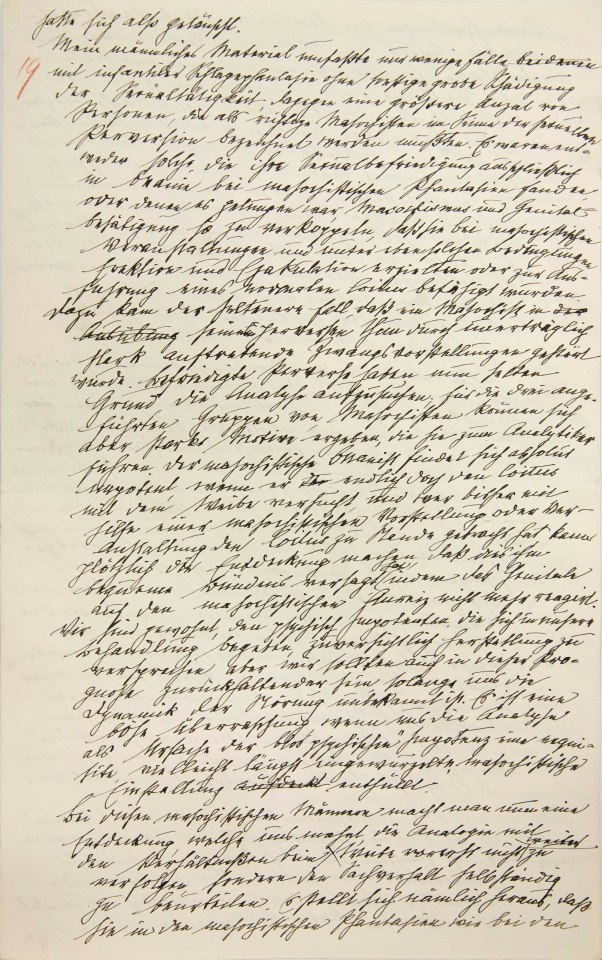 hatte sich also getäuscht.
Mein männliches Material umfaßte nur wenige Fälle bei denen
19
mit infantiler Schlagephantasie ohne sonstige grobe Schädigung
der Sexualtätigkeit, dagegen eine größere Anzal von
Personen, die als richtige Masochisten im Sinne der sexuellen
Perversion bezeichnet werden mußten. Es waren ent-
weder solche die ihre Sexualbefriedigung ausschließlich
in Onanie bei masochistischen Phantasien fanden,
oder denen es gelungen war Masochismus und Genital-
betätigung so zu verkoppeln, daß sie bei masochistischen
Veranstaltungen und unter ebensolchen Bedingungen
Erektion und Ejakulation erzielten oder zur Aus-
führung eines normalen Coitus befähigt wurden.
Dazu kam der seltenere Fall daß ein Masochist in der
Ausübung seinem perversen Thun durch unerträglich
stark auftretende Zwangsvorstellungen gestört
wurde. Befriedigte Perverse haben nun selten
Grund die Analyse aufzusuchen; für die drei ange-
führten Gruppen von Masochisten können sich
aber starke Motive ergeben, die sie zum Analytiker
führen. Der masochistische Onanist findet sich absolut
impotent wenn er endlich doch den Coitus
mit dem Weibe versucht und wer bisher mit
Hilfe einer masochistischen Vorstellung oder Ver-
anstaltung den Coitus zu Stande gebracht hat kann
plötzlich die Entdeckung machen daß dies ihm
bequeme Bündnis versagt hat indem das Genitale
auf den masochistischen Anreiz nicht mehr reagirt.
Wir sind gewohnt, den psychisch Impotenten die sich in unsere
Behandlung begeben, zuversichtlich Herstellung zu
versprechen aber wir sollten auch in dieser Pro-
gnose zurückhaltender sein solange uns die
Dynamik der Störung unbekannt ist. Es ist eine
böse Überraschung wenn uns die Analyse
als Ursache der „blos psychischen“ Impotenz eine exqui-
site, vielleicht längst eingewurzelte, masochistische
Einstellung aufdeckt enthüllt.
Bei diesen masochistischen Männern macht man nun eine
Entdeckung welche uns mahnt die Analogie mit
den Verhältnißen beim Weibe vorerst nicht weiter zu
verfolgen sondern den Sachverhalt selbständig
zu beurteilen. Es stellt sich nämlich heraus, daß
sie in den masochistischen Phantasien wie bei den